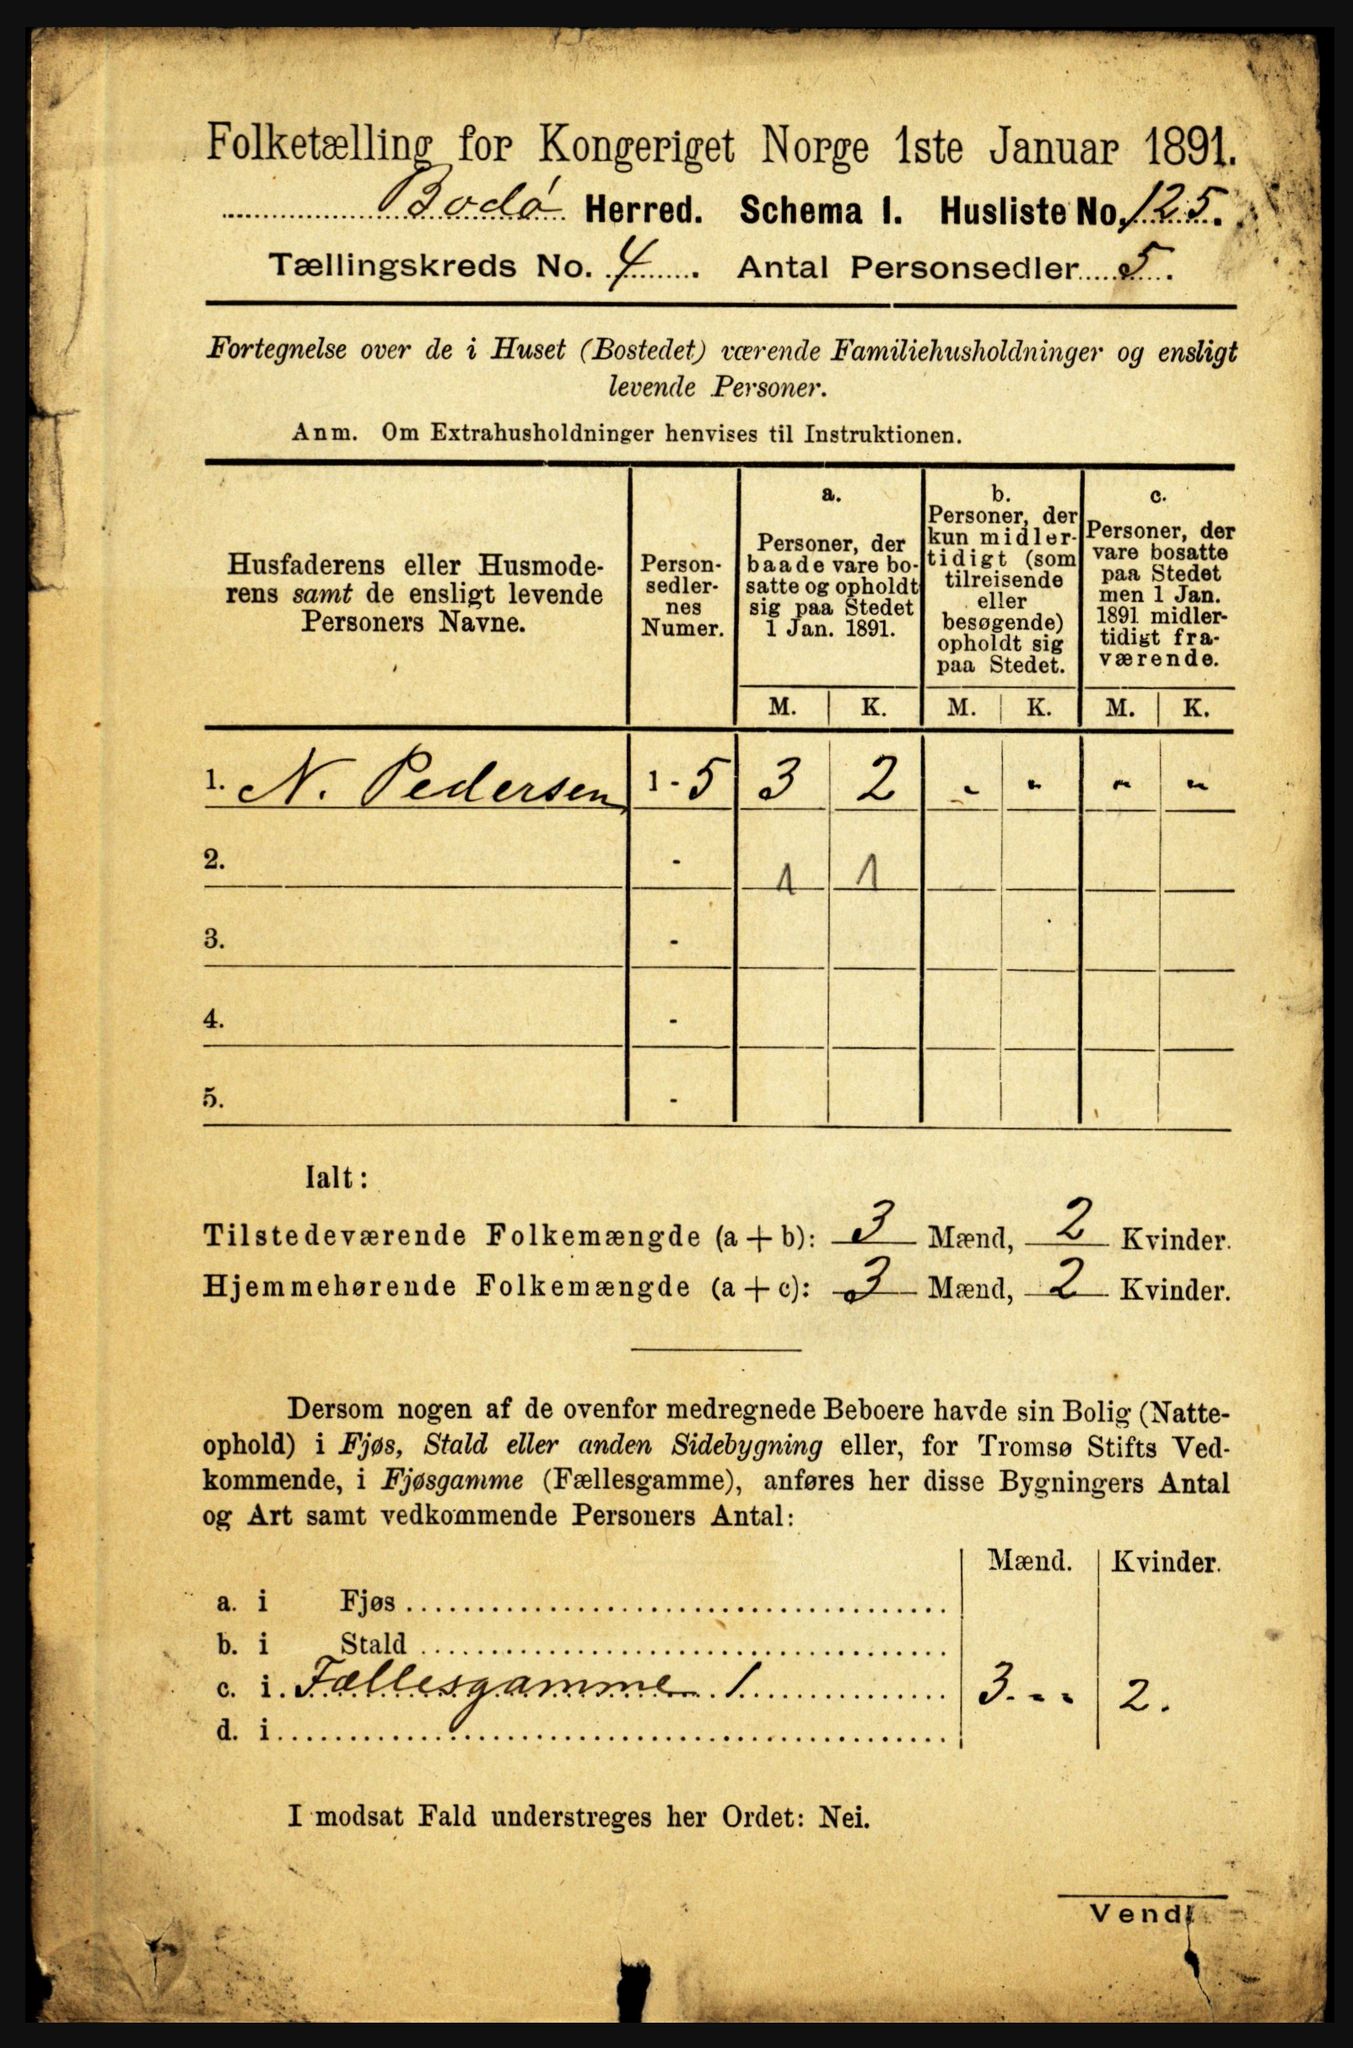 Folketælling for Kongeriget Norge 1ste Januar 1891.
Bodø Herred. Schema I. Husliste No. 125.
Tællingskreds No. 4. Antal Personsedler 5.
Fortegnelse over de i Huset (Bostedet) værende Familiehusholdninger og ensligt
levende Personer.
Anm. Om Extrahusholdninger henvises til Instruktionen.
Husfaderens eller Husmode-
rens samt de ensligt levende
Personers Navne.
Person-
sedler-
nes
Numer.
a.
Personer, der
baade vare bo-
satte og opholdt
sig paa Stedet
1 Jan. 1891.
b.
Personer, der
kun midler-
tidigt (som
tilreisende
eller
besøgende)
opholdt sig
paa Stedet.
c.
Personer, der
vare bosatte
paa Stedet
men 1 Jan.
1891 midler-
tidigt fra-
værende.
M. K. M. K. M. K.
1. N. Pedersen 1 - 5 3 2 - - - -
2. - 1 1
3. -
4. -
5. -
Ialt:
Tilstedeværende Folkemængde (a + b): 3 Mænd, 2 Kvinder.
Hjemmehørende Folkemængde (a + c): 3 Mænd, 2 Kvinder.
Dersom nogen af de ovenfor medregnede Beboere havde sin Bolig (Natte-
ophold) i Fjøs, Stald eller anden Sidebygning eller, for Tromsø Stifts Ved-
kommende, i Fjøsgamme (Fællesgamme), anføres her disse Bygningers Antal
og Art samt vedkommende Personers Antal:
Mænd. Kvinder.
a. i Fjøs
b. i Stald
c. i Fællesgamme 1 3. - - 2.
d. i
I modsat Fald understreges her Ordet: Nei.
Vend!